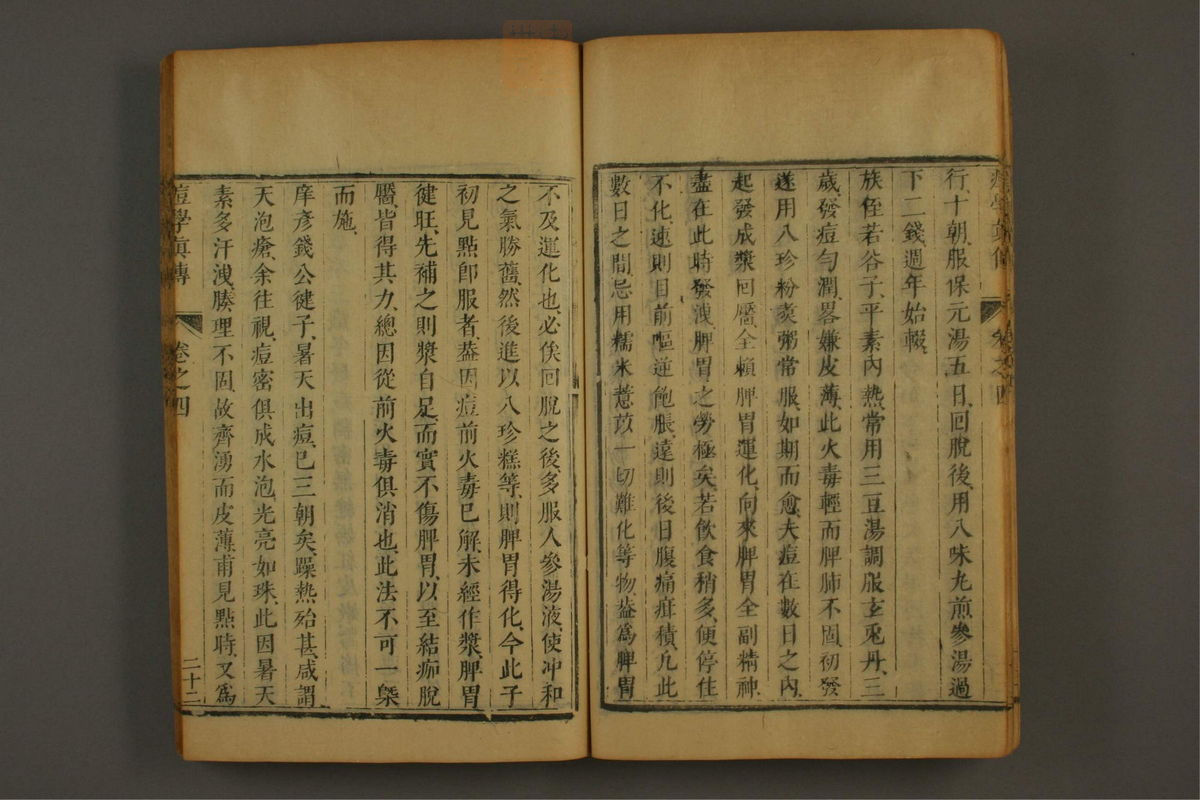 痘學真傳 卷之四
行、十朝、服保元湯五日、回脫後、用八味丸、煎參湯過
下二錢、週年始輟、
族侄若谷子、平素內熱、常用三豆湯、調服玄兎丹、三
歲、發痘勻潤、畧嫌皮薄、此火毒輕而脾肺不固、初發
遂用八珍粉煑粥常服、如期而愈、夫痘在數日之內、
起發成漿回靨、全賴脾胃運化、向來脾胃全副精神、
盡在此時發洩、脾胃之勞極矣、若飲食稍多、便停住
不化、速則目前嘔逆飽脹、遠則後日腹痛疳積、凢此
數日之間、忌用糯米薏苡一切難化等物、葢爲脾胃
不及運化也、必俟回脫之後、多服人參湯液、使冲和
之氣勝舊、然後進以八珍糕等、則脾胃得化、今此子
初見點卽服者、葢因痘前火毒已解、未經作漿、脾胃
健旺、先補之則漿自足、而實不傷脾胃、以至結痂脫
靨、皆得其力、總因從前火毒俱消也、此法不可一槩
而施、
庠彥錢公健子、暑天出痘、已三朝矣、躁熱殆甚、咸謂
天泡瘡、余往視、痘密俱成水泡、光亮如珠、此因暑天
素多汗洩、腠理不固、故齊湧而皮薄、甫見點時、又爲
痘學真傳 卷之四 二十二